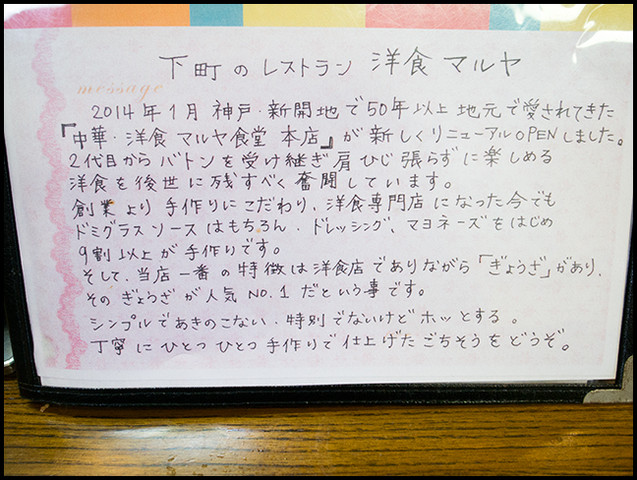 下町のレストラン 洋食 マルヤ
message
2014年1月 神戸・新開地で50年以上 地元で愛されてきた
『中華・洋食 マルヤ食堂 本店』が 新しくリニューアルOPENしました。
2代目からバトンを受け継ぎ肩ひじ張らずに楽しめる
洋食を後世に残すべく奮闘しています。
創業より手作りにこだわり、洋食専門店になった今でも
ドミグラスソースはもちろん、ドレッシング、マヨネーズをはじめ
9割以上が手作りです。
そして、当店一番の特徴は洋食店でありながら「ぎょうざ」があり、
そのぎょうざが人気NO.1だという事です。
シンプルであきのこない、特別でないけどホッとする。
丁寧にひとつひとつ手作りで仕上げたごちそうをどうぞ。